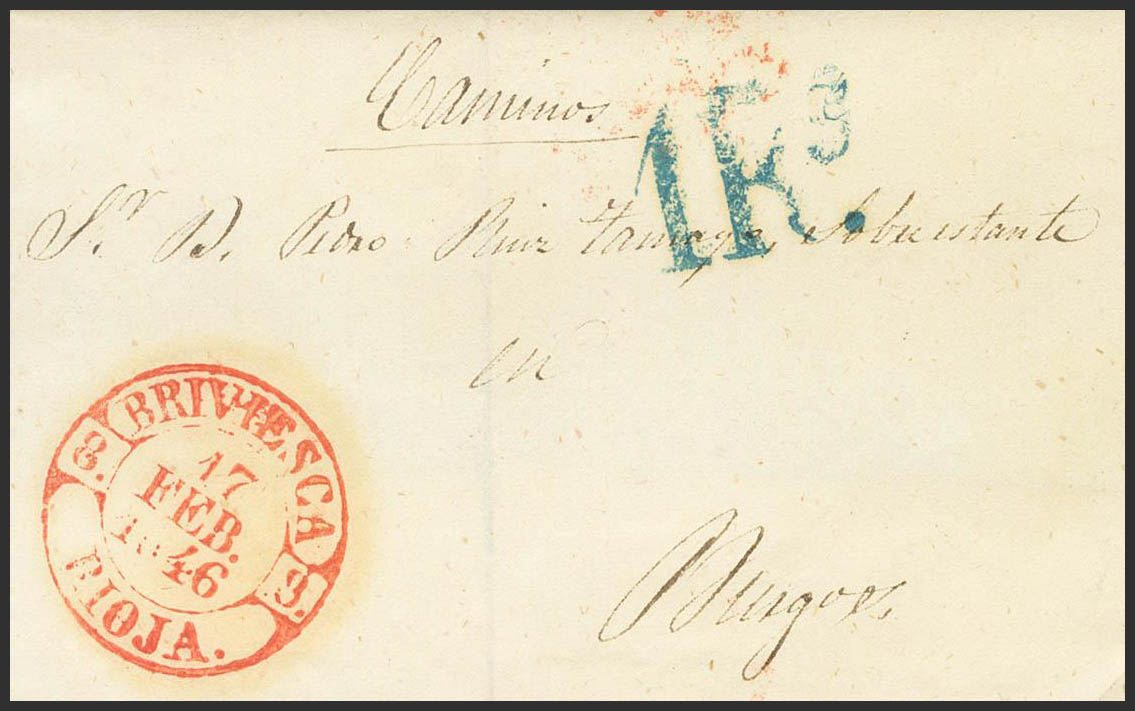 Caminos
1Rs.
Sr. D. Pedro Ruiz Tamayo, Sobrestante
en
Burgos.
BRIVIESCA
8. 8.
17
FEB.
1846
RIOJA.